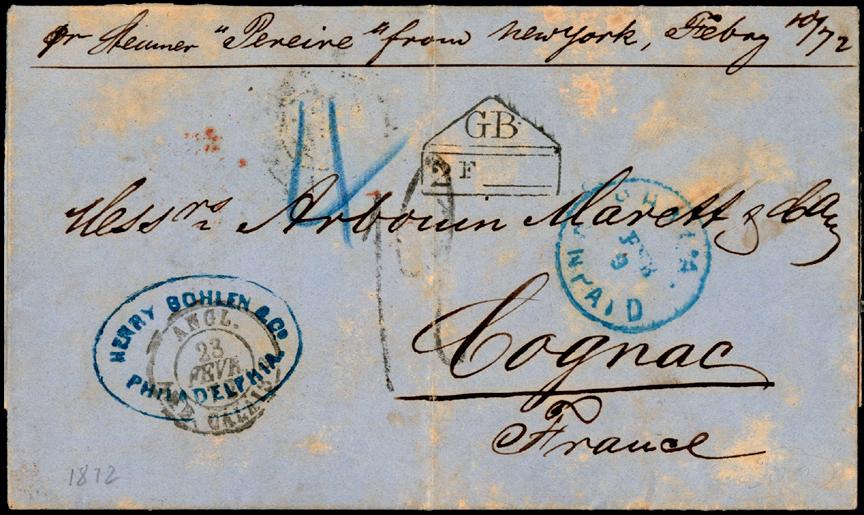 pr Steamer "Pereire" from New York, Febry 10/72
4
GB
2F
Messrs Arbouin Marett & Coy
PHILA.
FEB
9
UNPAID
HENRY BOHLEN & Co
PHILADELPHIA
ANGL.
23
FEVR
CALAIS
Cognac
France
1872